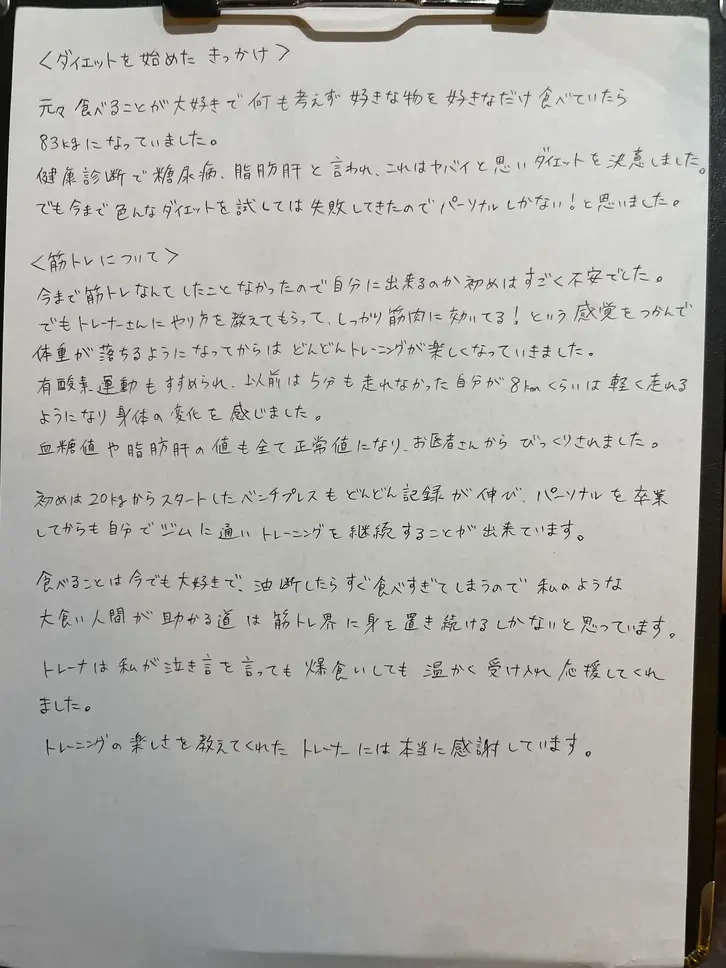 <ダイエットを始めた きっかけ>
元々食べることが大好きで何も考えず好きな物を好きなだけ食べていたら
83kgになっていました。
健康診断で糖尿病、脂肪肝と言われ、これはヤバイと思いダイエットを決意しました。
でも今まで色んなダイエットを試しては失敗してきたのでパーソナルしかない!と思いました。
<筋トレについて>
今まで筋トレなんてしたことなかったので自分に出来るのか初めはすごく不安でした。
でもトレーナーさんにやり方を教えてもらって、しっかり筋肉に効いてる!という感覚をつかんで
体重が落ちるようになってからはどんどんトレーニングが楽しくなっていきました。
有酸素運動もすすめられ、以前は5分も走れなかった自分が8kmくらいは軽く走れる
ようになり身体の変化を感じました。
血糖値や脂肪肝の値も全て正常値になり、お医者さんからびっくりされました。
初めは20kgからスタートしたベンチプレスもどんどん記録が伸び、パーソナルを卒業
してからも自分でジムに通いトレーニングを継続することが出来ています。
食べることは今でも大好きで、油断したらすぐ食べすぎてしまうので私のような
大食い人間が助かる道は筋トレ界に身を置き続けるしかないと思っています。
トレーナは私が泣き言を言っても爆食いしても温かく受け入れ応援してくれ
ました。
トレーニングの楽しさを教えてくれたトレーナーには本当に感謝しています。